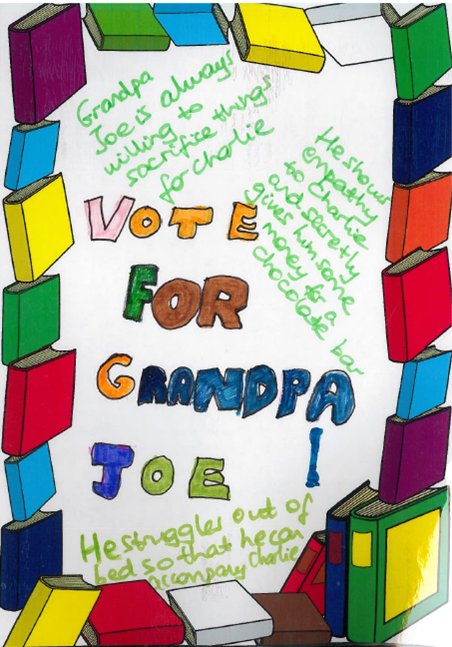 Grandpa
Joe is always
willing to
sacrifice things
for charlie
He shows
empathy
to Charlie
and secretly
gives him some
money for a
chocolate bar
VOTE
FOR
GRANDPA
JOE !
He struggles out of
bed so that he can
accompany Charlie